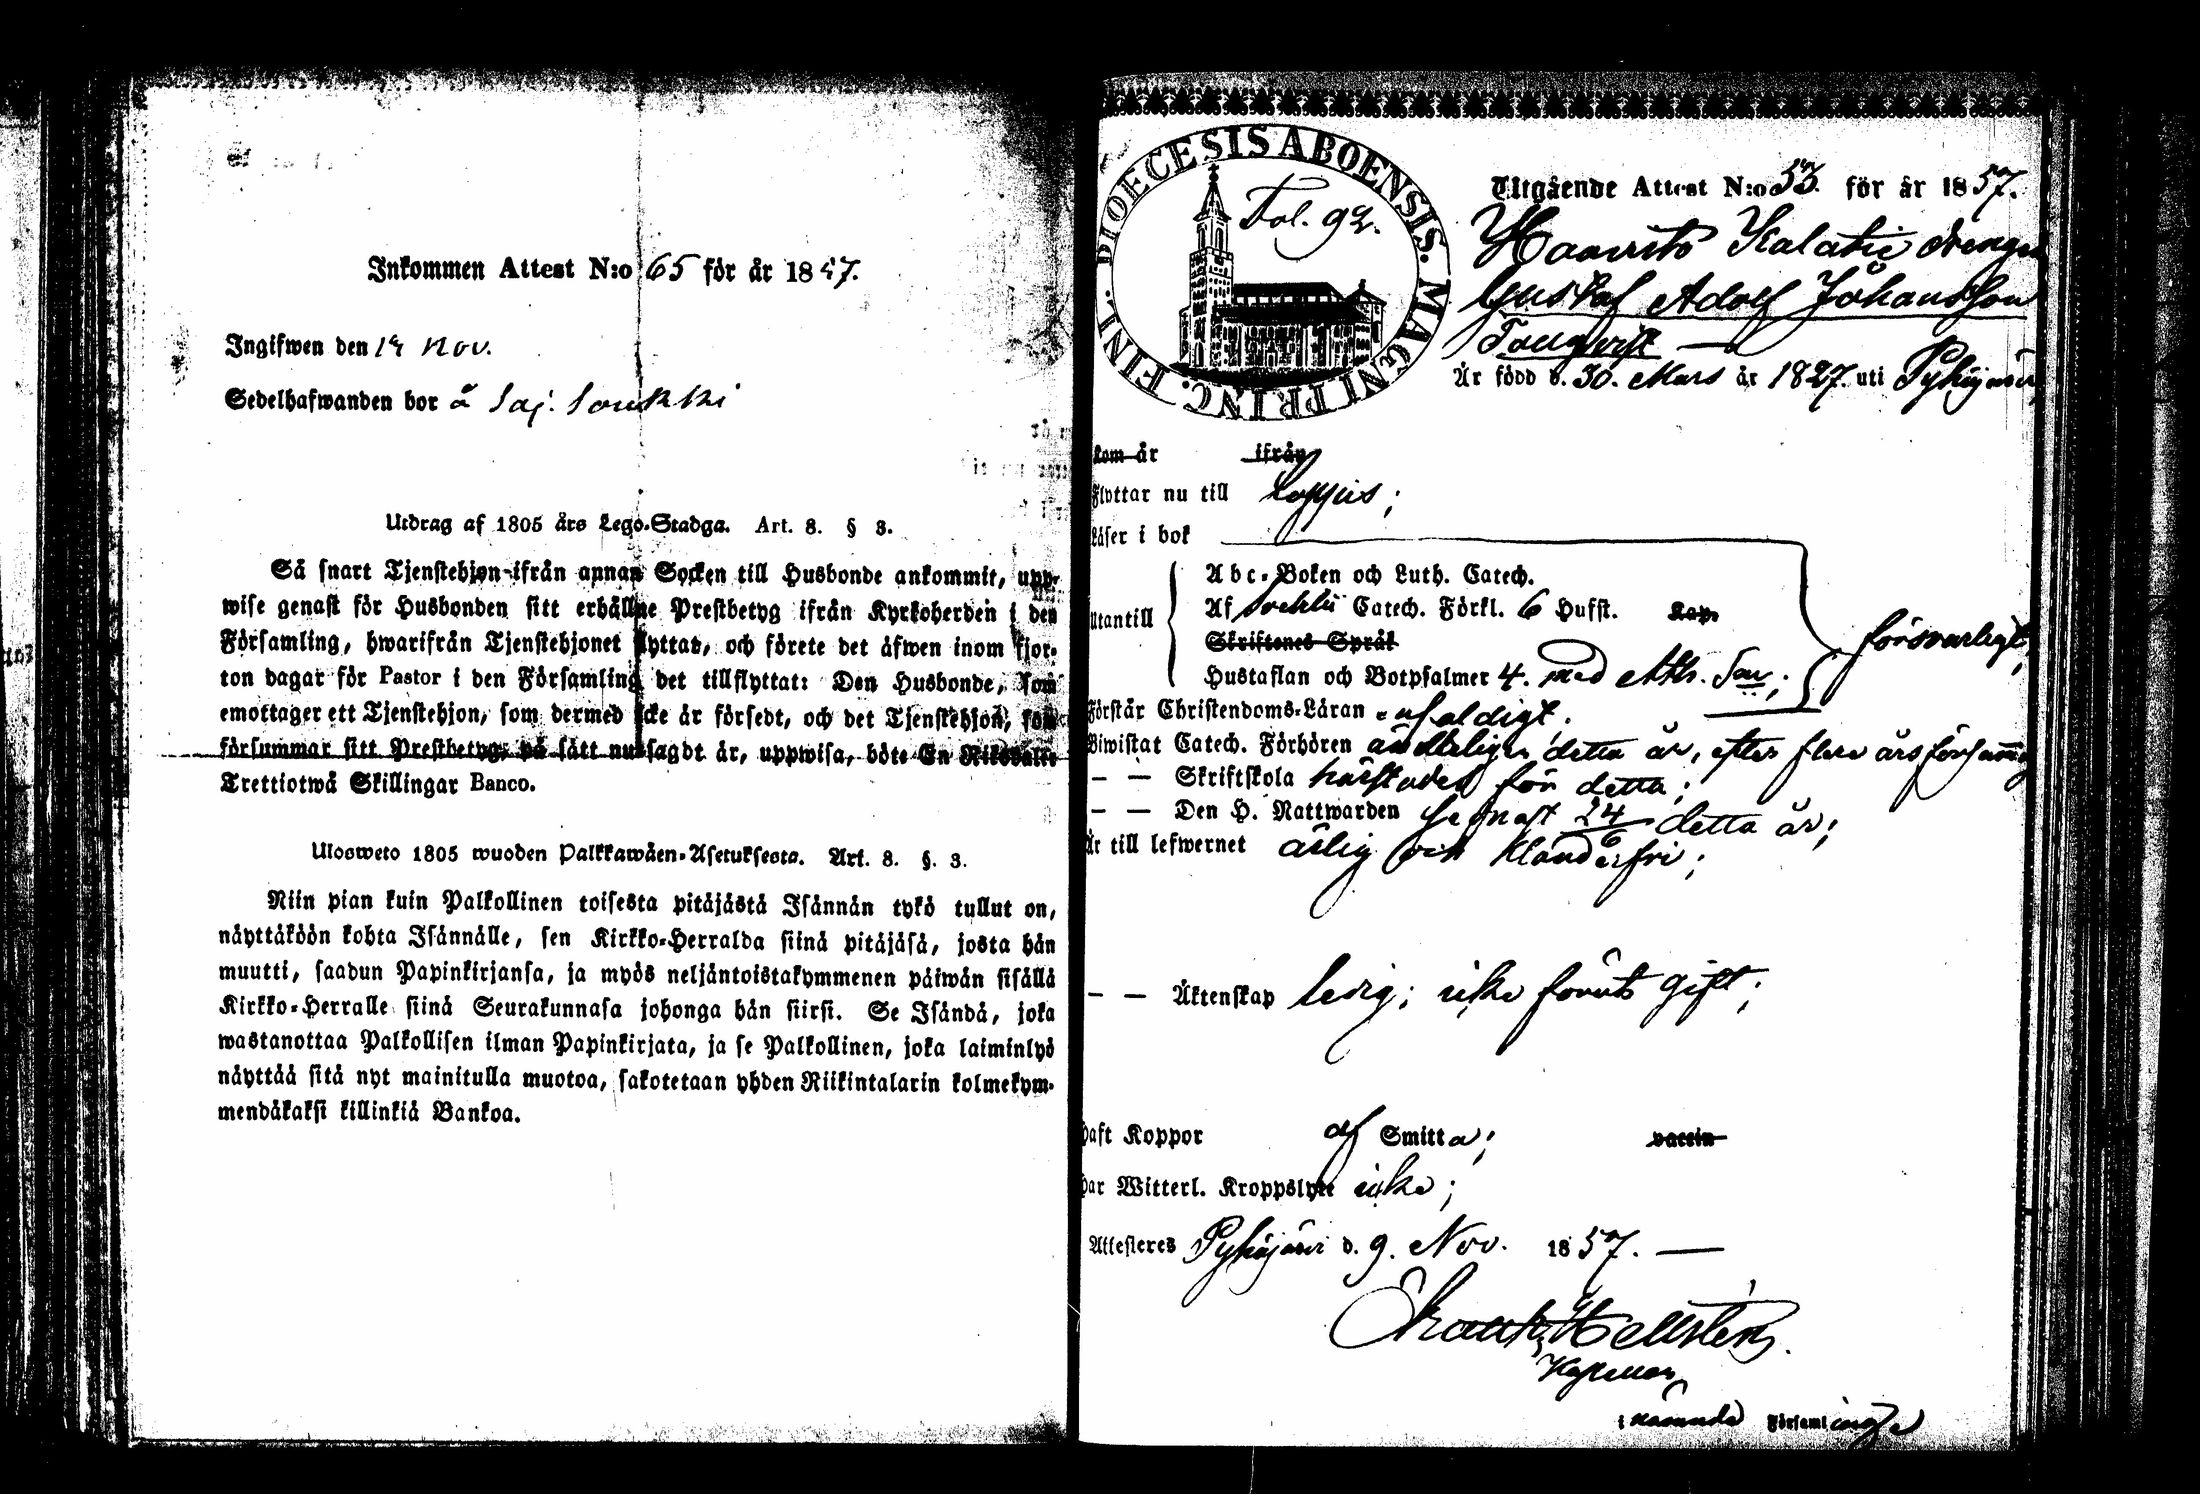 Inkommen Attest N:o 65 för år 1857.
Ingifwen den 14 Nov.
Sedelhafwanden bor å Saj. Soukki
Utdrag af 1805 års Lego-Stadga. Art. 8. § 3.
Så snart Tjenstehjon ifrån annan Socken till Husbonde ankommit, upp-
wise genast för Husbonden sitt erhållne Prestbetyg ifrån Kyrkoherden i den
Församling, hwarifrån Tjenstehjonet flyttat, och förete det äfwen inom fjor-
ton dagar för Pastor i den Församling det tillflyttat: Den Husbonde, som
emottager ett Tjenstehjon, som dermed icke är försedt, och det Tjenstehjon, som
försummar sitt Prestbetyg, på sätt nu sagdt är, uppwisa, böte En Riksdaler
Trettiotwå Skillingar Banco.
Ulosweto 1805 wuoden Palkkawäen-Asetuksesta. Art. 8. §. 3.
Niin pian kuin Palkollinen toisesta pitäjästä Isännän tykö tullut on,
näyttäköön kohta Isännälle, sen Kirkko-Herralda siinä pitäjäsä, josta hän
muutti, saadun Papinkirjansa, ja myös neljäntoistakymmenen päiwän sisällä
Kirkko-Herralle siinä Seurakunnasa johonga hän siirsi. Se Isändä, joka
wastanottaa Palkollisen ilman Papinkirjata, ja se Palkollinen, joka laiminlyö
näyttää sitä nyt mainitulla muotoa, sakotetaan yhden Riikintalarin kolmekym-
mendäkaksi killinkiä Bankoa.
DIOECESIS ABOENSIS. MAGNI PRINC. FINL.
Fol. 92.
Utgående Attest N:o 53. för år 1857.
Haavisto Kalatie drengen
Gustaf Adolf Johansson
Är född d. 30. Mars år 1827. uti Pyhäjärvi,
kom år ifrån
Flyttar nu till Loppis;
Läser i bok
Utantill
Abc-Boken och Luth. Catech.
Af Catech. Förkl. 6 Hufst. Kap.
Skriftenes Språk
Hustaflan och Botpsalmer 4. med Ath. ;
försvarligt;
Förstår Christendoms-Läran enfaldigt;
Biwistat Catech. Förhören ändteligen detta år, efter flere års försummelse
— — Skriftskola härstädes för detta;
— — Den H. Nattwarden senast 24/6 detta år;
Är till lefwernet ärlig och klanderfri;
— — Äktenskap ledig; icke förut gift;
Haft Koppor af Smitta; vaccin
Har Witterl. Kroppslyte icke;
Attesteres Pyhäjärvi d. 9. Nov. 1857. —
Frans Hellstén.
i nämnde Församlinge